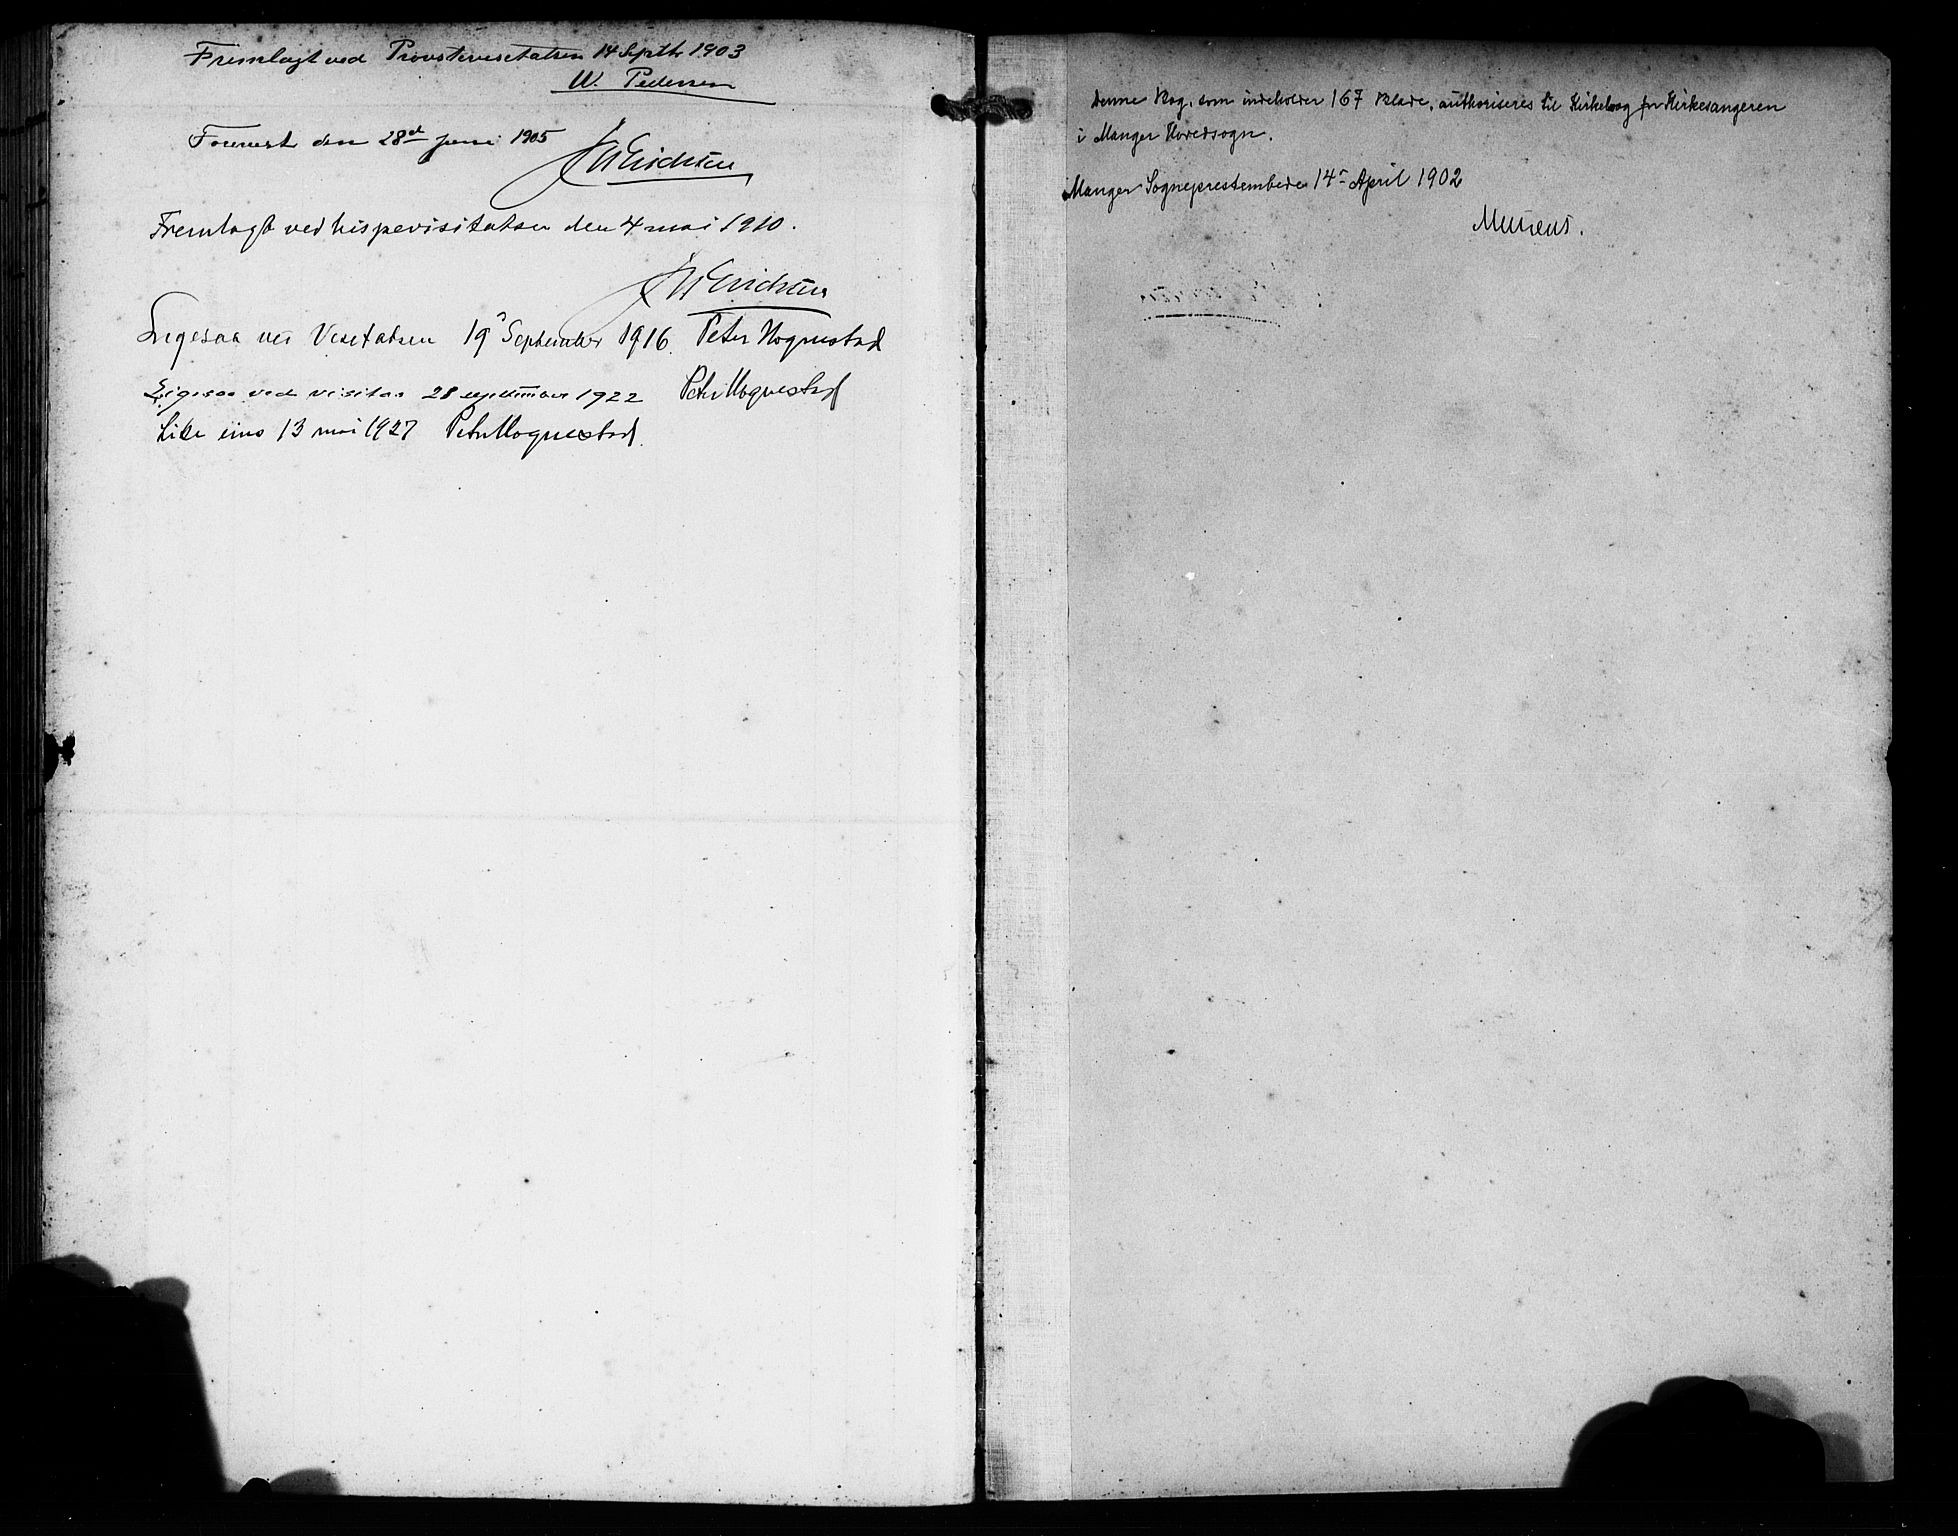 Fremlagt ved Provstevisetatsen 14 Septbr 1903
W. Pedersen
Forevist den 28de juni 1905
JWErichsen
Fremlagt ved bispevisitatsen den 4 mai 1910.
JWErichsen
Ligesaa ved Visetatsen 19 September 1916. Peter Hognestad
Ligesaa ved visitas 28 september 1922 Peter Hognestad
Like eins 13 mai 1927 Peter Hognestad.
Denne Bog, som indeholder 167 Blade, authoriseres til Kirkebog for Kirkesangeren
i Manger Hovedsogn.
Manger Sogneprestembede 14de April 1902